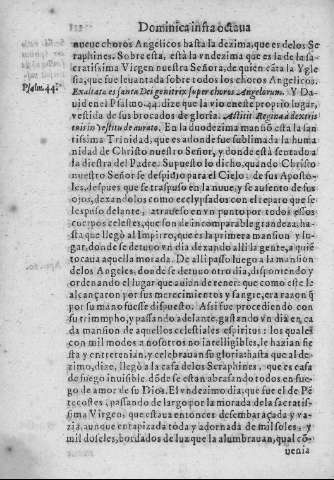 Dominica infra octaua
nueue choros Angelicos hasta la dezima, que es de los Se
raphines. Sobre esta, està la vndezima que es la de la sa-
cratissima Virgen nuestra Señora, de quien cãta la Ygle
sia, que fue leuantada sobre todos los choros Angelicos.
Exaltata es sancta Dei genitrix super choros Angelorum. Y Da
Psalm. 44.
uid en el Psalmo. 44. dize que la vio en este proprio lugar,
vestida de sus brocados de gloria. Astitit Regina à dextris
tuis in vestitu deaurato. En la duodezima mansiõ està la san
tissima Trinidad, que es adonde fue sublimada la huma
nidad de Christo nuestro Señor, y donde està sentado a
la diestra del Padre. Supuesto lo dicho, quando Christo
nuestro Señor se despidio para el Cielo, de sus Aposto-
les, despues que se traspuso en la nuue, y se ausento de sus
ojos, dexandolos como eeclypsados con el reparo que se
les puso delante; atrauesso en vn punto por todos essos
cuerpos celestes, que son de incomparable grandeza, ha-
sta que llegò al Impireo, que es la primera mansion y lu-
gar, donde se detuuo vn dia dexando alli la gente, a quiẽ
tocaua aquella morada. De alli passo luego a la mansion
de los Angeles, donde se detuuo otro dia, disponiendo y
ordenando el lugar que auian de tener: que como este le
alcançaron por sus merecimientos y sangre, era razon q̃
por su mano fuesse dispuesto. Assi fue procediendo con
su triumpho, y passando adelante, gastando vn dia en ca
da mansion de aquellos celestiales espiritus: los quales
con mil modos a nosotros no intelligibles, le hazian fie
sta y entretenian, y celebrauan su gloria: hasta que al de-
zimo, dize, llegò a la casa de los Seraphines, que es casa
de fuego inuisible dõde se estan abrasando todos en fue-
go de amor de su Dios. El vndezimo dia, que fue el de Pẽ
tecostes, passando de largo por la morada de la sacratis-
sima Virgen, que estaua entonces desembaraçada y va-
zia, aunque entapizada toda y adornada de mil soles, y
mil doseles, bordados de luz que la alumbrauan, qual cõ-
uenia